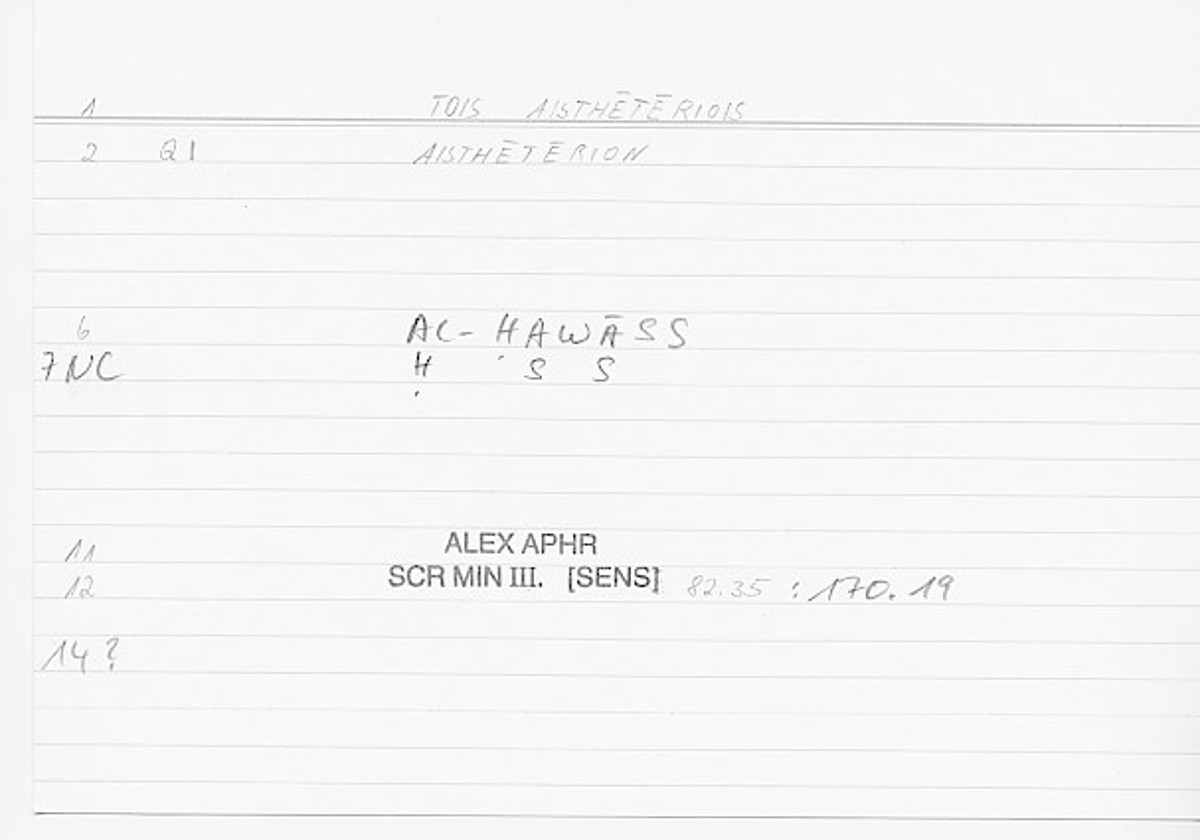 1 TOIS AISTHĒTĒRIOIS
2 Q1 AISTHĒTĒRION
6 AL-ḤAWĀSS
7NC Ḥ ' S S
11 ALEX APHR
12 SCR MIN III. [SENS] 82.35 : 170.19
14?